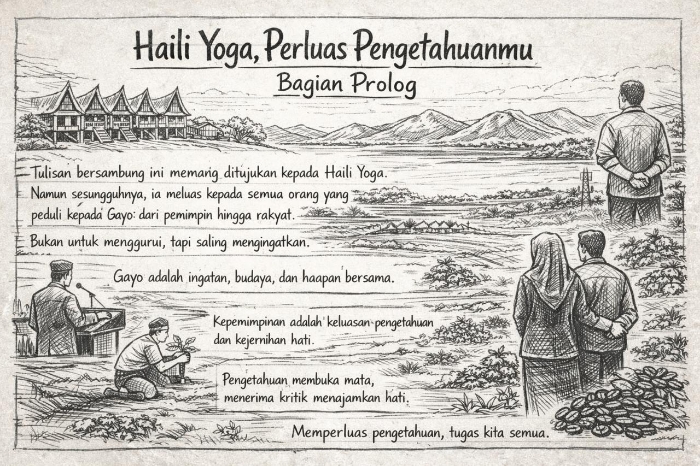 Haili Yoga, Perluas Pengetahuanmu
Bagian Prolog
Tulisan bersambung ini memang ditujukan kepada Haili Yoga.
Namun sesungguhnya, ia meluas kepada semua orang yang
peduli kepada Gayo: dari pemimpin hingga rakyat.
Bukan untuk menggurui, tapi saling mengingatkan.
Gayo adalah ingatan, budaya, dan haapan bersama.
Kepemimpinan adalah keluasan pengetahuan
dan kejernihan hati.
Pengetahuan membuka mata,
menerima kritik menajamkan hati.
Memperluas pengetahuan, tugas kita semua.